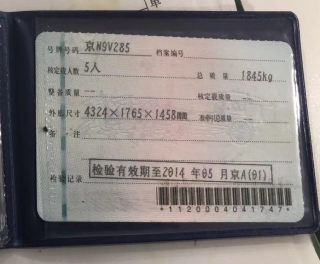 号牌号码 京N9V285 档案编号
核定载人数 5人 总质量 1845kg
整备质量 -- 核定载质量 --
外廓尺寸 4324×1765×1458mm 准牵引总质量 --
备注
检验记录 检验有效期至2014 年05 月京A(01)
*1120004041747*